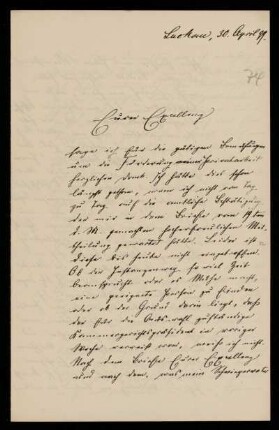 Luckau, 30. April 99.
74
Eurer Excellenz
sage ich für die gütigen Bemühungen
um die Förderung meiner Privatarbeit
herzlichen Dank. Ich hätte dies schon
längst gethan, wenn ich nicht von Tag
zu Tag auf die amtliche Bestätigung
der mir in dem Briefe vom 19 ten
d. M. gemachten hocherfreulichen Mit-
theilung gewartet hätte. Leider ist
diese bis heute nicht eingetroffen.
Ob der Instanzenweg so viel Zeit
beansprucht oder es Mühe macht,
eine geeignete Person zu finden
oder ob der Grund darin liegt, daß
der für die
Kammergerichtspräsident in voriger
Woche verreist war, weiß ich nicht.
Nach dem Briefe Eurer Excellenz
und nach dem, was mein Schwiegervater